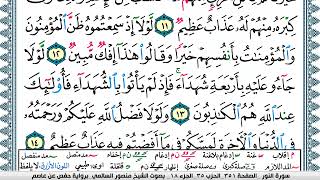 كِبْرَهُۥ مِنْهُمْ لَهُۥ عَذَابٌ عَظِيمٌ ١١ لَّوْلَآ إِذْ سَمِعْتُمُوهُ ظَنَّ ٱلْمُؤْمِنُونَ
وَٱلْمُؤْمِنَٰتُ بِأَنفُسِهِمْ خَيْرًا وَقَالُوا۟ هَٰذَآ إِفْكٌ مُّبِينٌ ١٢ لَّوْلَا
جَآءُو عَلَيْهِ بِأَرْبَعَةِ شُهَدَآءَ فَإِذْ لَمْ يَأْتُوا۟ بِٱلشُّهَدَآءِ فَأُو۟لَٰٓئِكَ
عِندَ ٱللَّهِ هُمُ ٱلْكَٰذِبُونَ ١٣ وَلَوْلَا فَضْلُ ٱللَّهِ عَلَيْكُمْ وَرَحْمَتُهُۥ
فِى ٱلدُّنْيَا وَٱلْءَاخِرَةِ لَمَسَّكُمْ فِى مَآ أَفَضْتُمْ فِيهِ عَذَابٌ عَظِيمٌ ١٤
سورة النور - الصفحة ٣٥١ - الجزء ١٨ - الحزب ٣٥ - بصوت الشيخ منصور السالمي - برواية حفص عن عاصم